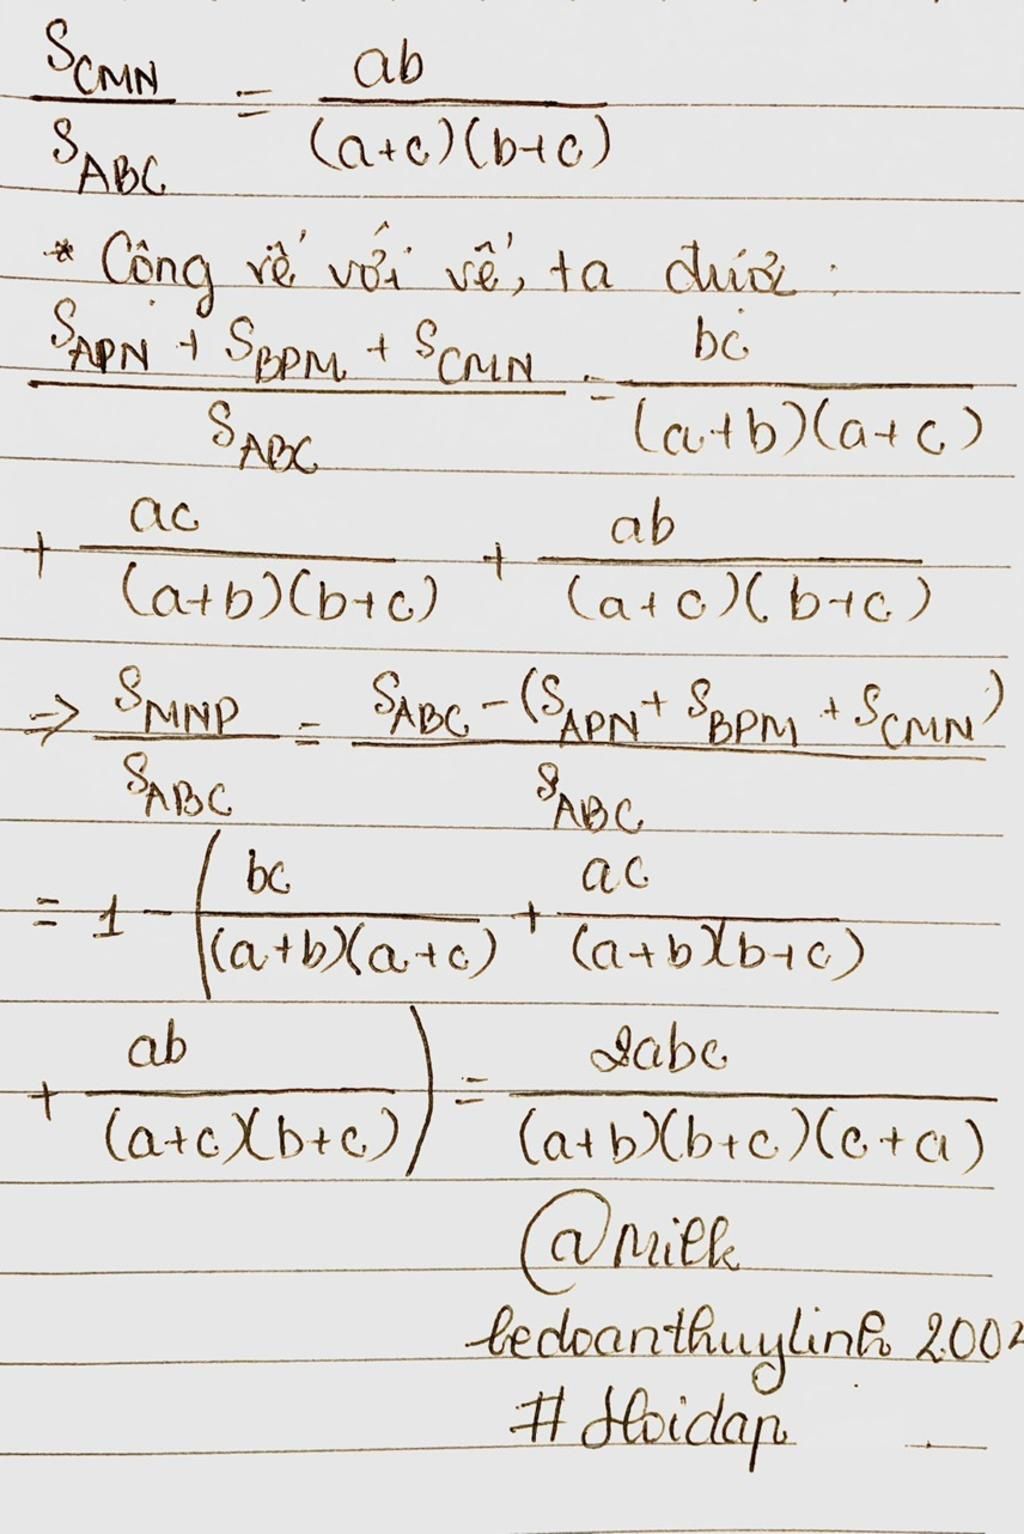 S_CMN / S_ABC = ab / (a+c)(b+c)
* Công vế với vế, ta được :
S_APN + S_BPM + S_CMN / S_ABC = bc / (a+b)(a+c)
+ ac / (a+b)(b+c) + ab / (a+c)(b+c)
=> S_MNP / S_ABC = S_ABC - (S_APN + S_BPM + S_CMN) / S_ABC
= 1 - ( bc / (a+b)(a+c) + ac / (a+b)(b+c)
+ ab / (a+c)(b+c) ) = 2abc / (a+b)(b+c)(c+a)
@milk
ledoanthuylinh 2002
# Hoidap